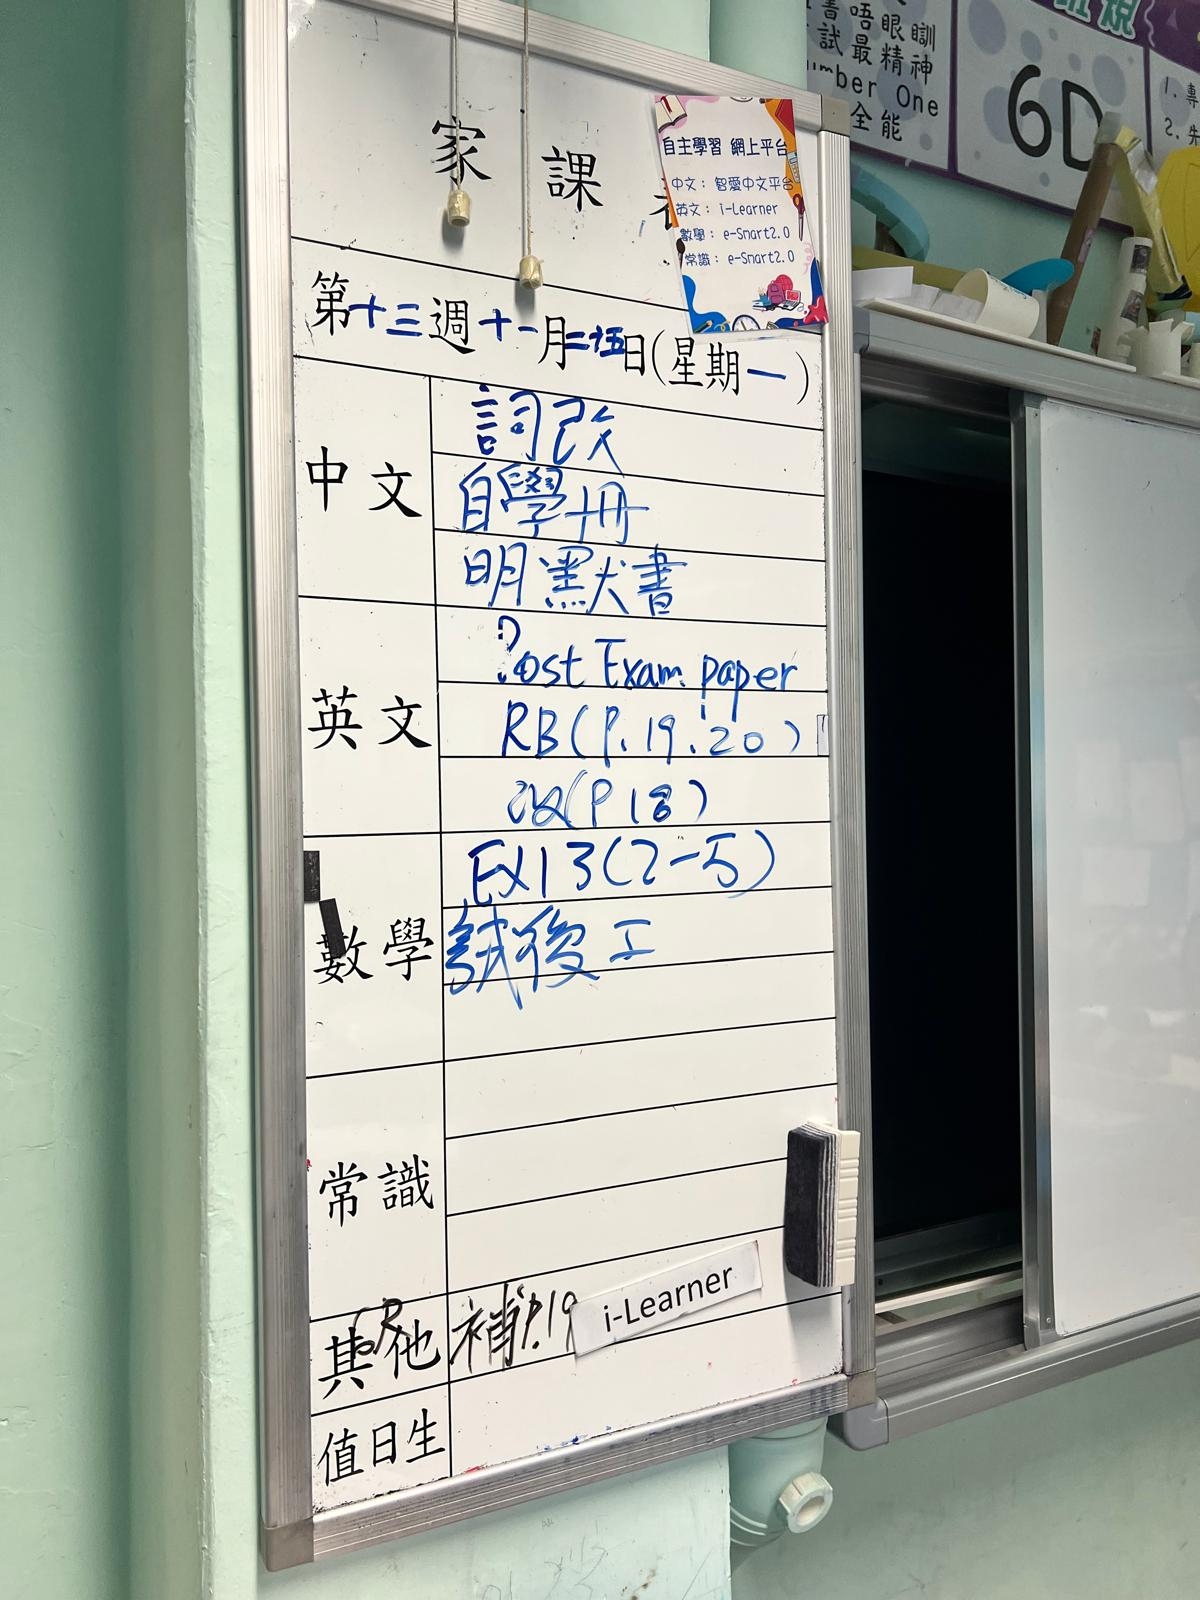 家課
自主學習 網上平台
中文： 智愛中文平台
英文： i-Learner
數學： e-Smart2.0
常識： e-Smart2.0
第十三週十一月二十五日(星期一)
中文
詞改
自學冊
明默書
英文
Post Exam paper
RB(P.19.20)
改(P18)
數學
EX13(2-5)
試後工
常識
其他
補P.19
i-Learner
值日生
書唔眼瞓
試最精神
umber One
全能
班規
6D
1. 專
2. 先